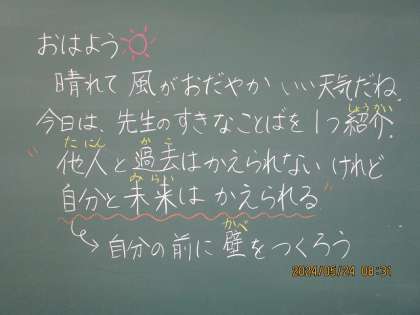 おはよう
晴れて 風がおだやか いい天気だね.
今日は、先生のすきなことばを1つ紹介.
しょうかい
たにん
かこ
"他人と過去はかえられない けれど
みらい
自分と未来は かえられる"
かべ
自分の前に壁をつくろう
2024/05/24 08:31